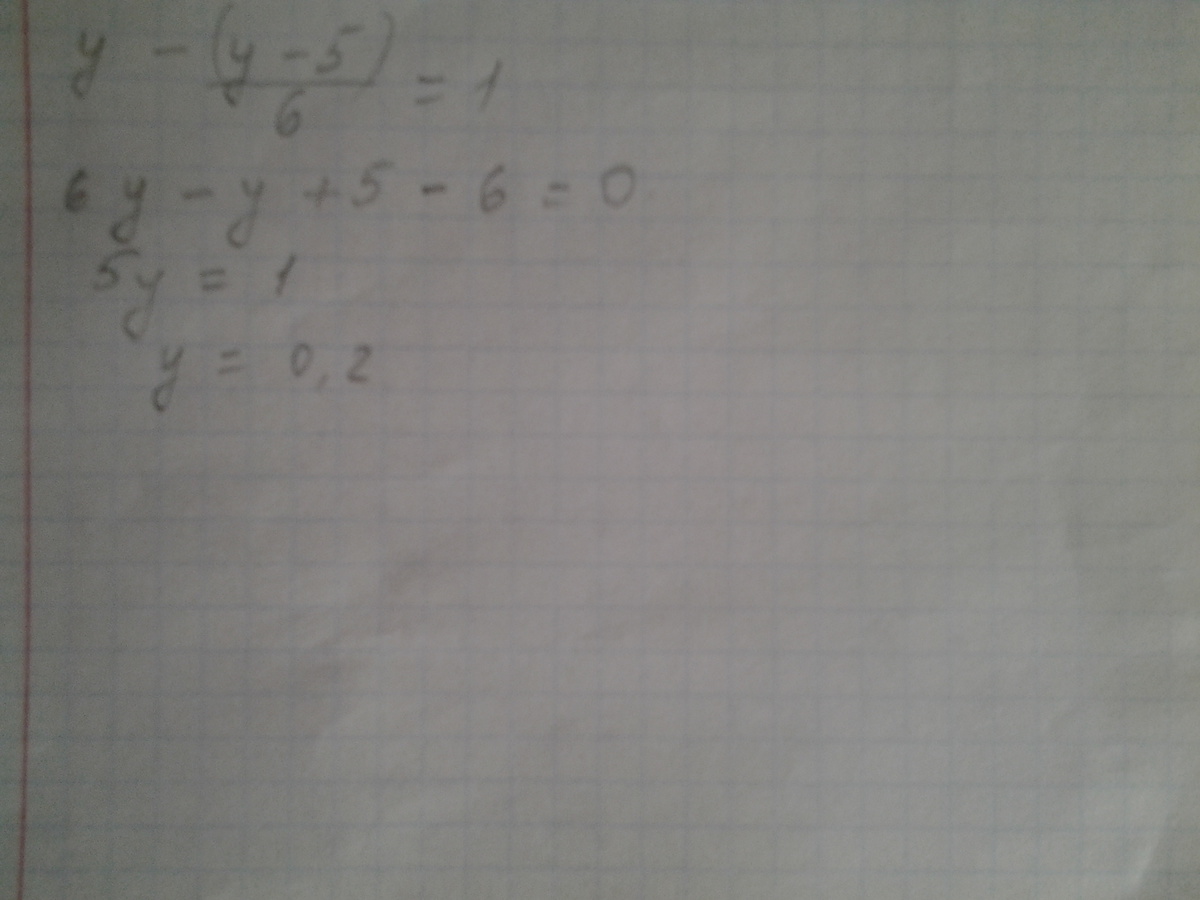 y - (y - 5)/6 = 1
6y - y + 5 - 6 = 0
5y = 1
y = 0,2